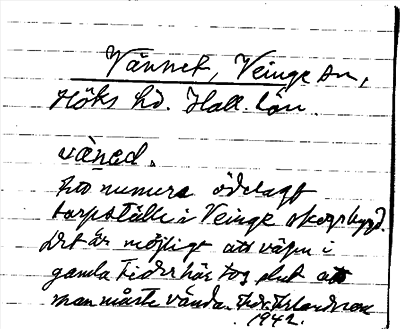 Vännet, Veinge sn,
Höks hd. Hall. län.
vàned.
Ett numera ödelagt
torpställe i Veinge skogsbygd.
Det är möjligt att vägen i
gamla tider här tog slut att
man måste vända. Fridr. Erlandsson
1942.